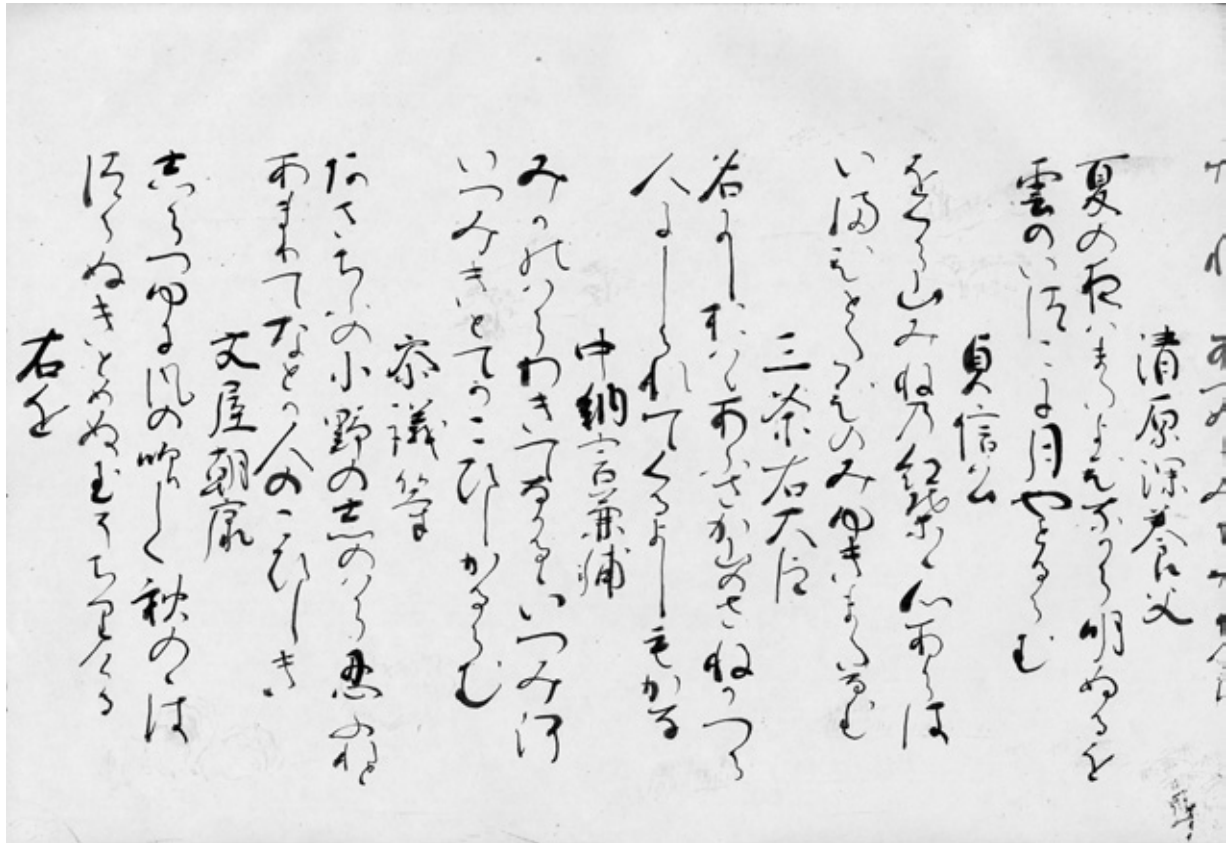 清原深養父
夏の夜はまたよひなから明ぬるを
雲のいつこに月やとるらむ
貞信公
をくら山みねの紅葉々心あらは
いまひとたひのみゆきまたなむ
三条右大臣
名にしおはゝあふさか山のさねかつら
人にしられてくるよしもかな
中納言兼輔
みかのはらわきてなかるゝいつみ河
いつみきとてかこひしかるらむ
参議等
あさちふの小野のしのはら忍ふれと
あまりてなとか人のこひしき
文屋朝康
しらつゆに風の吹しく秋のゝは
つらぬきとめぬ玉そちりける
右近